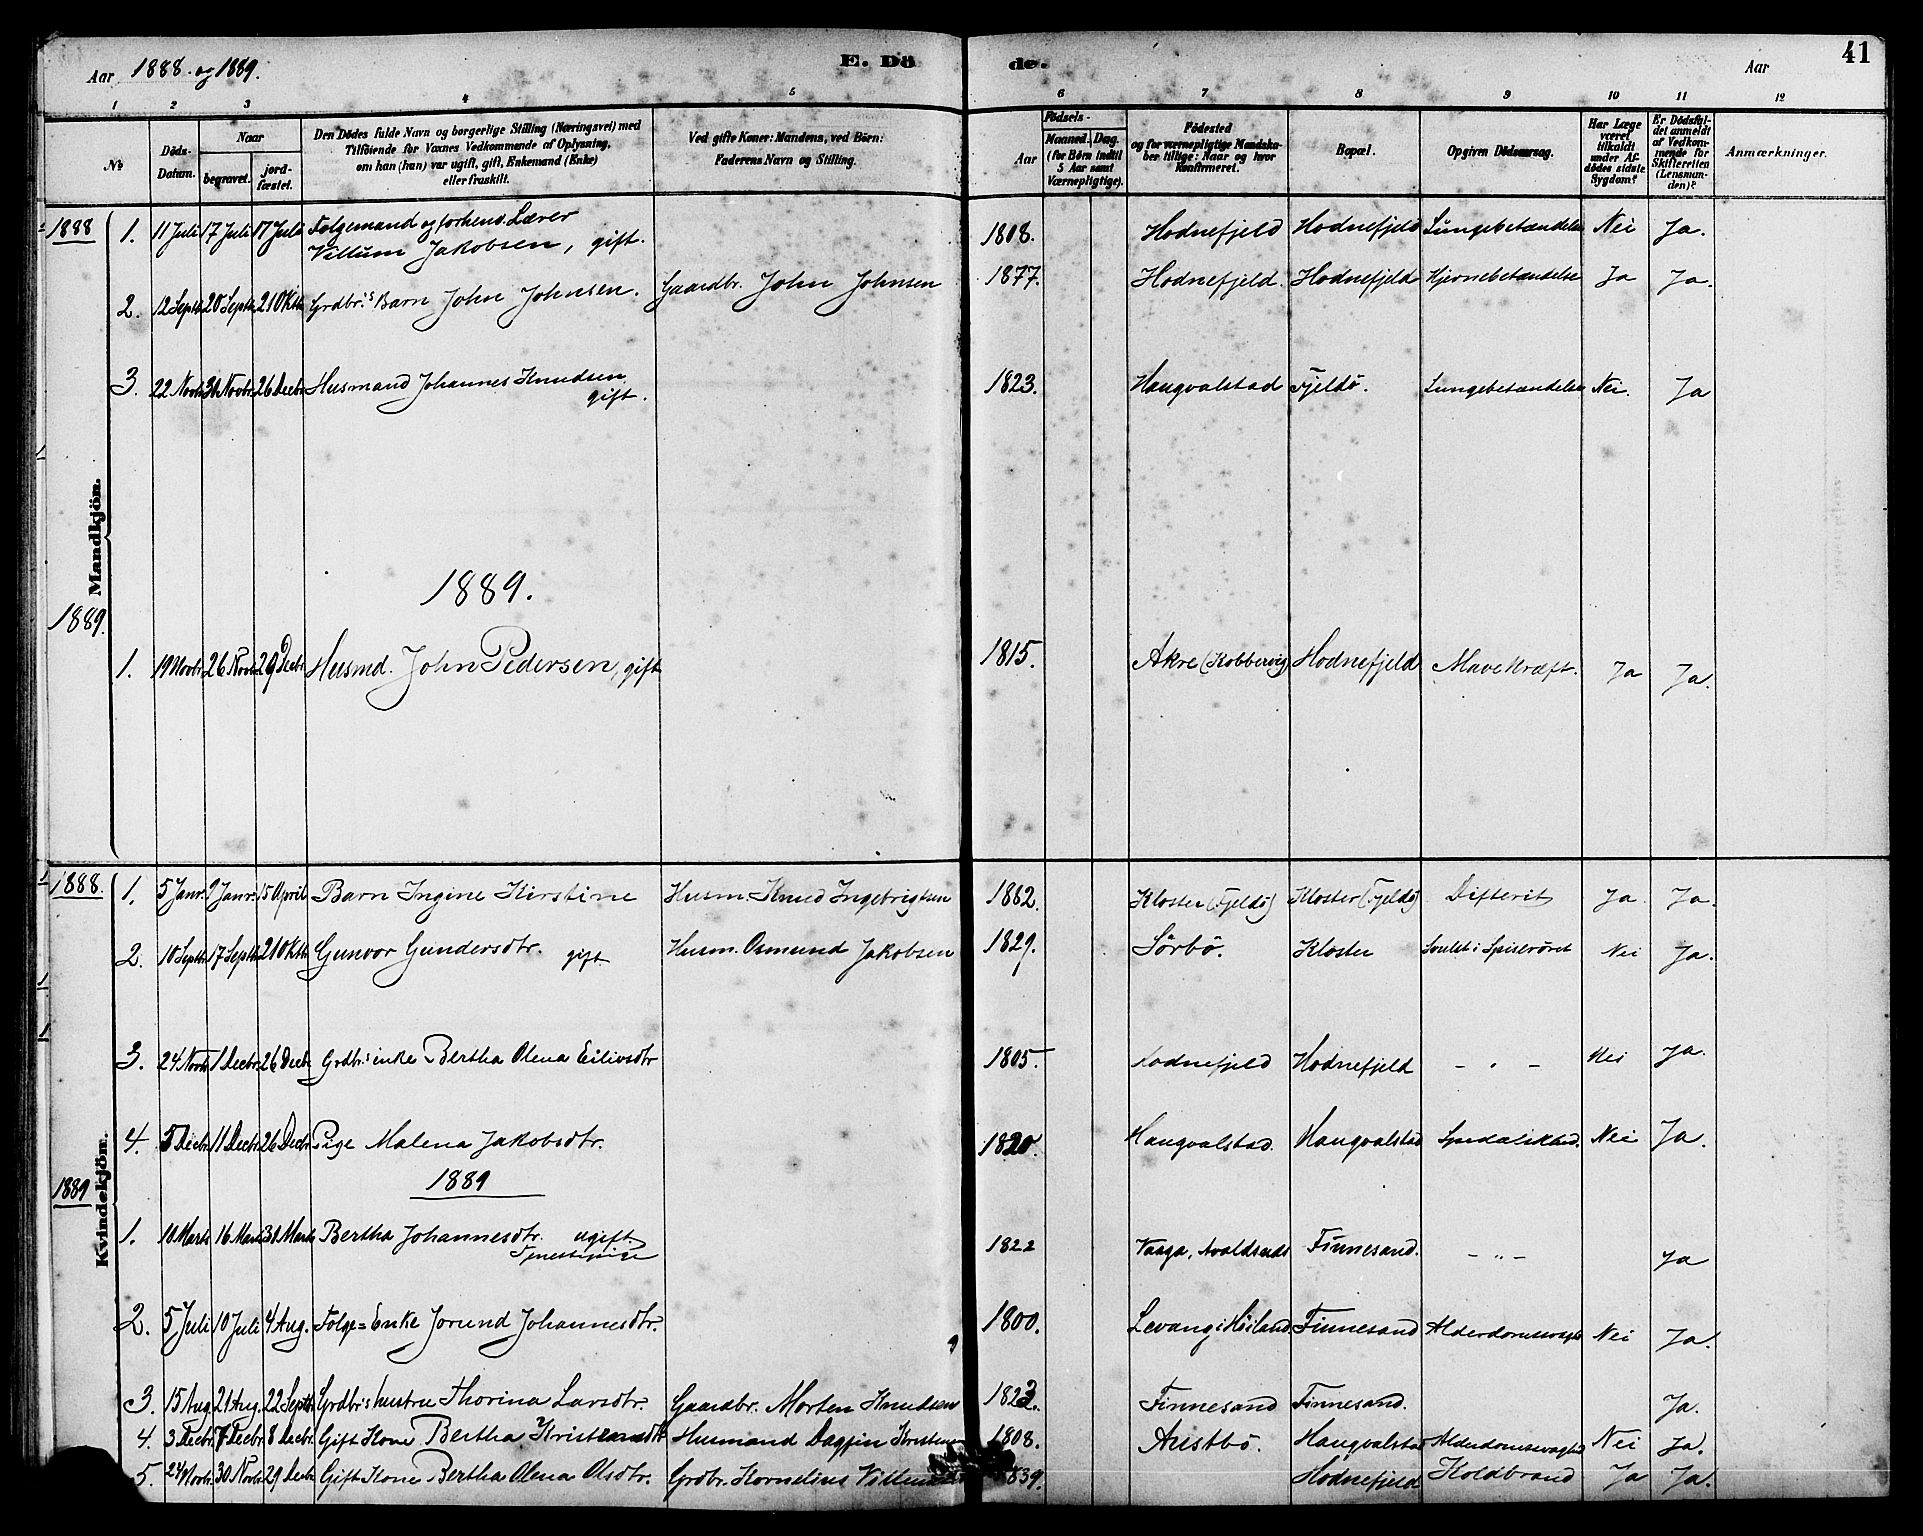 Aar 1888 og 1889. E. Dö de. Aar 41
1 2 3 4 5 6 7 8 9 10 11 12
№ Döds-Datum. Naar begravet. jordfæstet. Den Dödes fulde Navn og borgerlige Stilling (Næringsvei) med Tilföiende for Voxnes Vedkommende af Oplysning, om han (hun) var ugift, gift, Enkemand (Enke) eller fraskilt. Ved gifte Koner: Mandens, ved Börn: Faderens Navn og Stilling. Födsels- Aar Maaned. Dag. (for Börn indtil 5 Aar samt Værnepligtige). Födested og for værnepligtige Mandskaber tillige: Naar og hvor konfirmeret. Bopæl. Opgiven Dödsaarsag. Har Læge været tilkaldt under Afdödes sidste Sygdom? Er Dödsfaldet anmeldt af Vedkommende for Skifteretten (Lensmanden)? Anmærkninger.
Mandkjön.
1888 1. 11 Juli 17 Juli 17 Juli Folgemand og forhenv. Lærer
Villum Jakobsen, gift. 1808. Hodnefjeld Hodnefjeld Lungebetændelse Nei Ja.
2. 12 Septb. 20 Septb. 21 Oktb. Grdbr.s Barn John Johnsen. Gaardbr. John Johnsen 1877. Hodnefjeld. Hodnefjeld Hjernebetændelse Ja Ja.
3. 22 Novb. 30 Novbr. 26 Decbr. Husmand Johannes Knudsen
gift. 1823. Haugvalstad Fjeldö. Lungebetændelse Nei. Ja
1889.
1889.
1. 19 Novbr. 26 Novb. 29 Decbr. Husmd. John Pedersen, gift 1815. Akre (Kobbervig) Hodnefjeld Mave Kræft. Ja Ja.
Kvindekjön.
1888. 1. 5 Janr. 9 Janr. 15 April Barn Ingine Kirstine Husm. Knud Ingebrigtsen 1882. Kloster (Fjeldö) Kloster (Fjeldö) Difterit Ja Ja.
2. 10 Septb. 17 Septb. 21 Oktb. Gunvor Gundersdtr. gift Husm. Osmund Jakobsen 1829. Sörbö. Kloster Svulst i Spiseröret Nei Ja.
3. 24 Novb. 1 Decbr. 26 Decb. Grdbr.s enke Bertha Olena Eilivsdtr 1805. Hodnefjeld Hodnefjeld - " - Nei Ja.
4. 5 Decbr. 11 Decbr. 26 Decbr. Pige Malena Jakobsdtr. 1820. Haugvalstad. Haugvalstad Nei Ja.
1889
1889
1. 10 Marts 16 Marts 31 Marts Bertha Johannesdtr. ugift.
Tjenestepige 1822 Vaaga, Avaldsnds Finnesand. - " - Ja
2. 5 Juli 10 Juli 4 Aug. Folge=Enke Jorund Johannesdtr. 1800. Levang i Höiland Finnesand Alderdomssvaghd Nei Ja.
3. 15 Aug. 21 Aug. 22 Septb. Grdbr.s hustru Thorina Larsdtr. Gaardbr. Morten Knudsen 1823. Finnesand Finnesand. Ja.
4. 3 Decbr. 7 Decbr. 8 Decbr. Gift Kone Bertha Kristensdtr Husmand Dagfin Kristensen 1808. Austbö. Haugvalstad Alderdomssvaghd Nei Ja.
5. 24 Novbr. 30 Novb. 29 Decb. Gift Kone Bertha Olena Olsdtr. Grdbr. Kornelius 1839. Hodnefjeld Koldbrand Ja Ja.